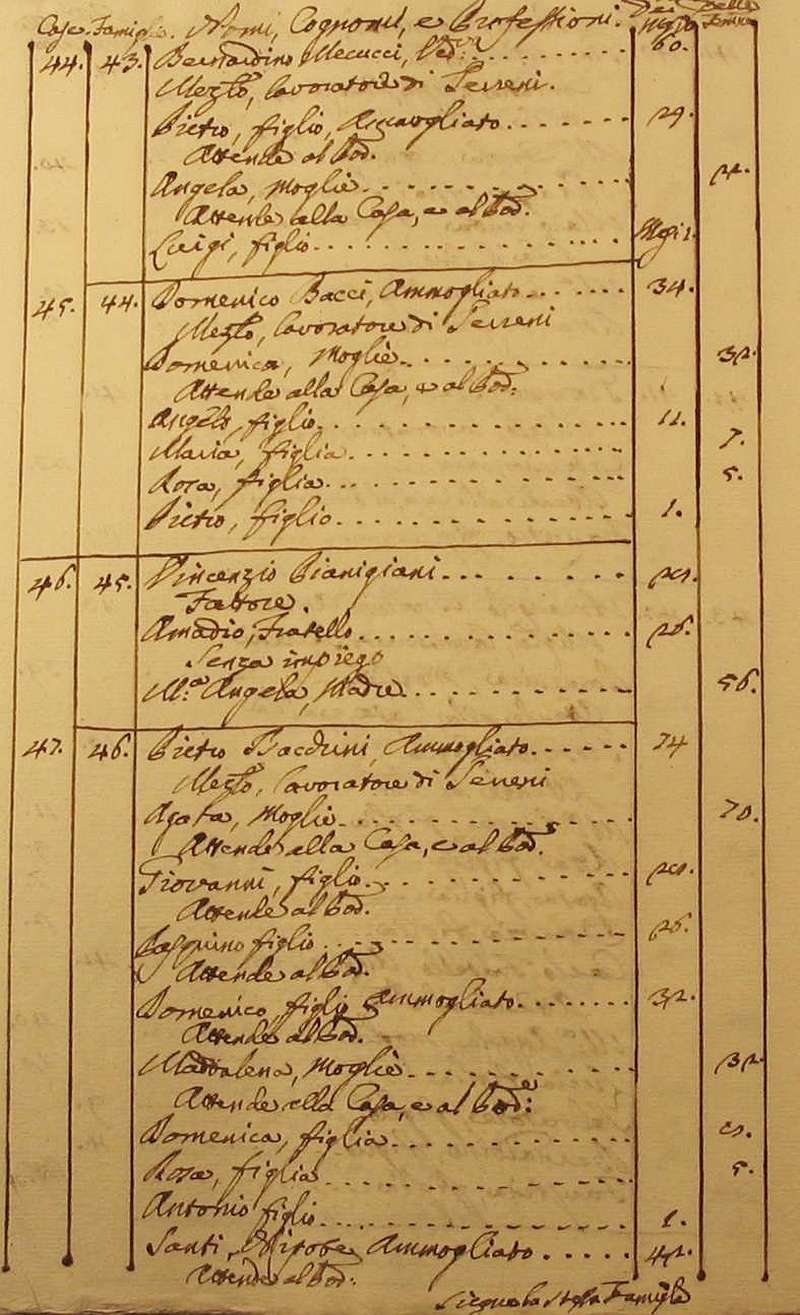 Case. Famiglie. Nomi, Cognomi, e Professioni. Dei Maschi Delle Femine
44. 43. Bernardino Mecucci, Ved.º 60.
Mezz.º, lavoratore di Terreni.
Pietro, figlio, Ammogliato 29.
Attende al Pod.
Angela, moglie 22.
Attende alla Casa, e al Pod.
Luigi, figlio Mesi 1.
45. 44. Domenico Bacci, Ammogliato 34.
Mezz.º, lavoratore di Terreni
Domenica, Moglie 32.
Attende alla Casa, e al Pod:
Angelo, figlio 11.
Maria, figlia 7.
Rosa, figlia 5.
Pietro, figlio 1.
46. 45. Vincenzio Pianigiani 29.
Fattore.
Amadio, Fratello 26.
Senza impiego
M.a Angela, Madre 56.
47. 46. Pietro Bacchini, Ammogliato 74
Mezz.º, lavoratore di Terreni
Agata, Moglie 70.
Attende alla Casa, e al Pod.
Giovanni, figlio 29.
Attende al Pod.
Pasquino figlio 26.
Attende al Pod.
Domenico, figlio Ammogliato 32.
Attende al Pod.
Maddalena, moglie 32.
Attende alla Casa, e al Pod.e:
Domenica, figlia 9.
Rosa, figlia 5.
Antonio figlio 1.
Santi, Nipote, Ammogliato 42.
Attende al Pod:
Siegue la stessa Famiglia